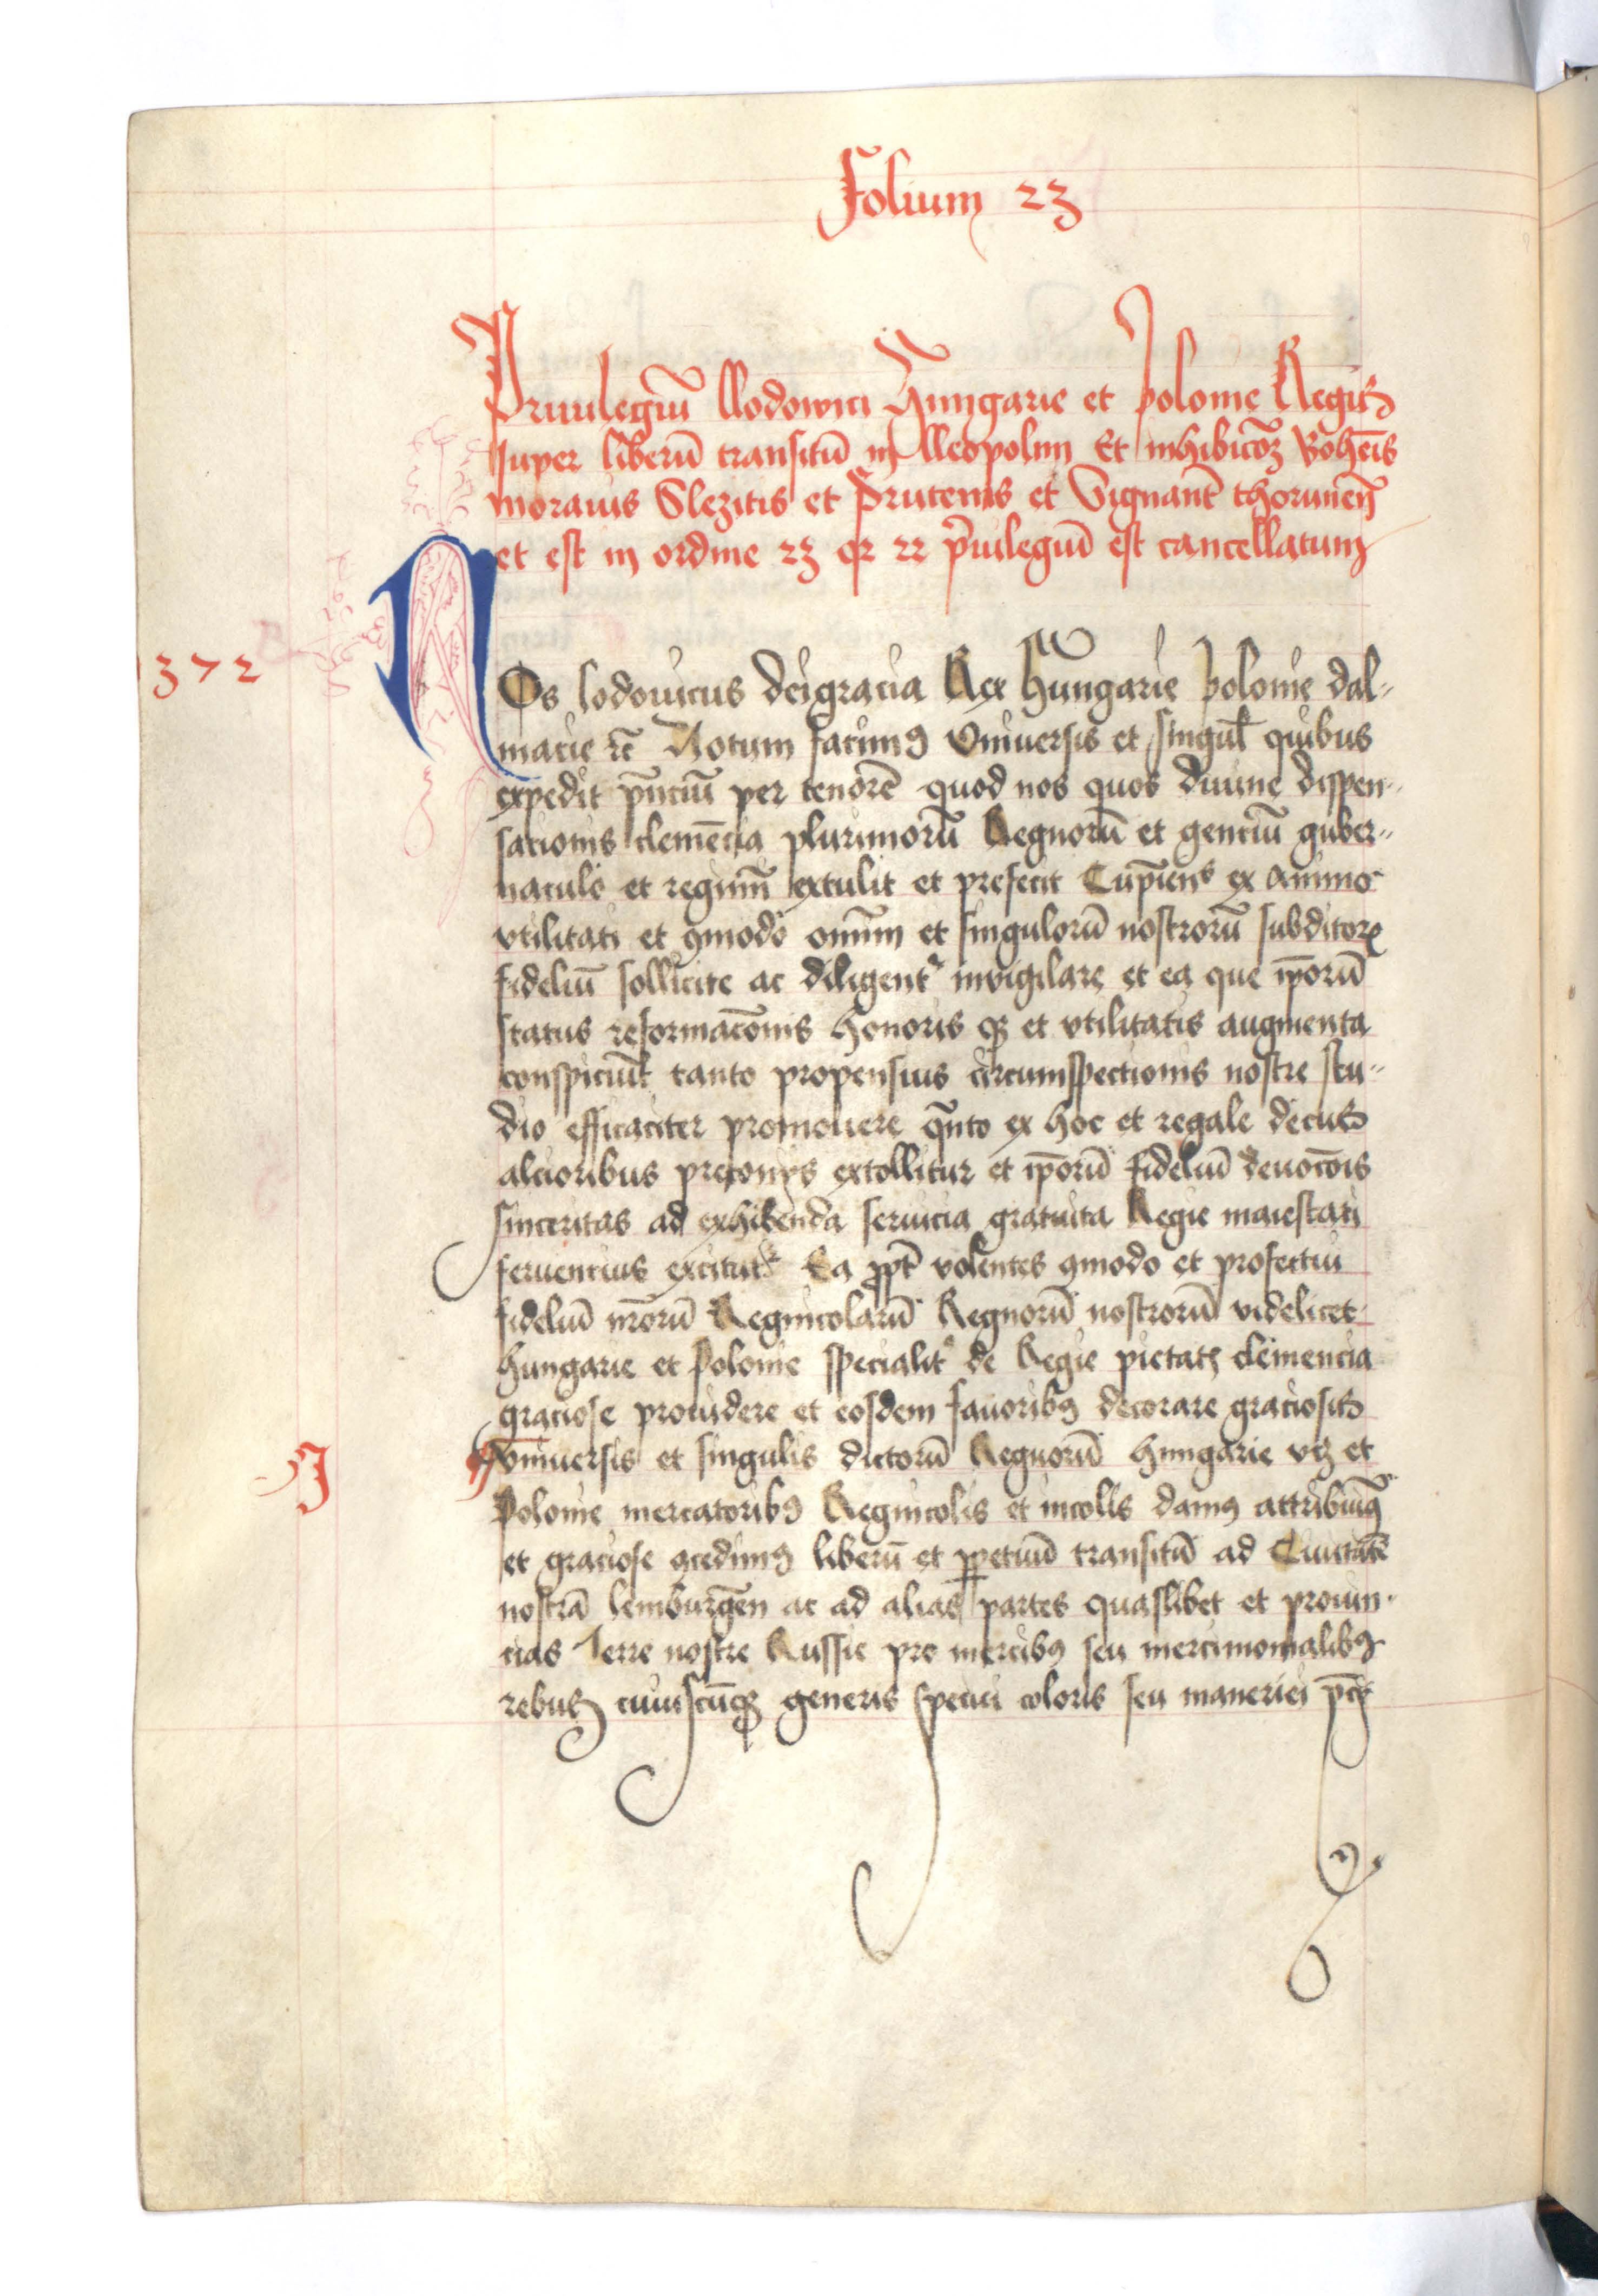 Folium 23
Priuilegiū Llodowici Hungarie et Polonie Regis
super liberū transitū in Lleopolim Et inhibicōȝ Bohēis
morauis Slezitis et Prutenis et thorunēn
et est in ordine 23 qr 22 p̄uilegiū est cancellatum
1372
NOs lodouicus dei gracia Rex Hungarie Polonie dal-
macie r̄c Notum facimꝰ Vniuersis et singul̄ quibus
expedit pn̄ciū per tenorē quod nos quos diuine dispen-
sationis clemēcia plurimorū Regnorū et genciū guber-
naculo et regimī extulit et prefecit Cupiens ex animo
vtilitati et ꝯmodo om̄im et singulorū nostrorū subditorꝝ
fideliū sollicite ac diligent' inuigilare et ea que ip̄orū
status reformac̄onis honoris qꝫ et vtilitatis augmenta
conspiciūt tanto propensius circumspectionis nostre stu-
dio efficaciter promouere qn̄to ex hoc et regale decus
alcioribus preconijs extollitur et ip̄orū fideliū deuoc̄ois
sinceritas ad exhibenda seruicia gratuita Regie maiestati
feruencius excitatr Ea ꝓpt̄ volentes ꝯmodo et profectui
fideliū nr̄orū Regnicolarū Regnorū nostrorū videlicet
hungarie et Polonie specialit' de Regie pietatꝭ clemencia
graciose prouidere et eosdem fauoribꝰ decorare graciosis
J
vniuersis et singulis dictorū Regnorū hungarie vtȝ et
Polonie mercatoribꝰ Regnicolis et incolis damꝰ attribuimꝰ
et graciose ꝯcedimꝰ liberū et ꝑpetuū transitū ad Ciuitatē
nostrā lemburgēn ac ad alias partes quaslibet et prouin-
cias Terre nostre Russie pro mercibꝰ seu mercimonialibꝰ
rebus cuiuscūqꝫ generis speciei coloris seu maneriei